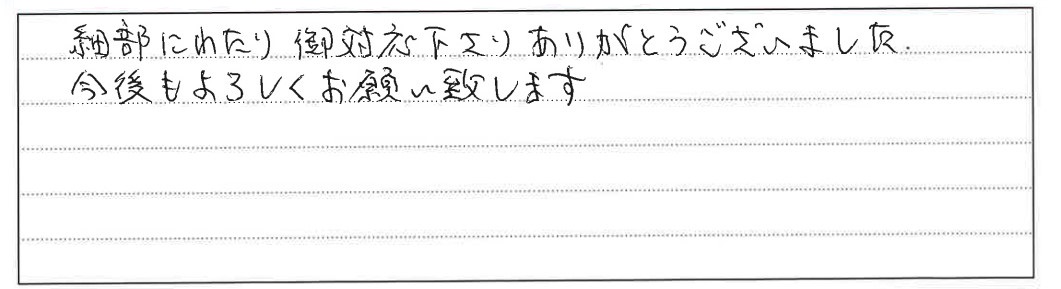 細部にわたり御対応下さりありがとうございました.
今後もよろしくお願い致します